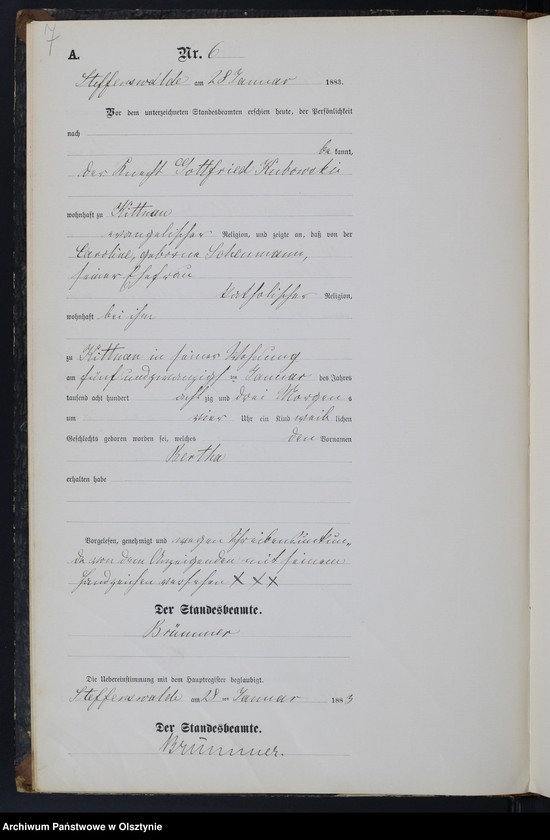 7
A. Nr. 6
Steffenswalde am 28 Januar 1883.
Vor dem unterzeichneten Standesbeamten erschien heute, der Persönlichkeit
nach
be kannt,
der Knecht Gottfried Kubowski
wohnhaft zu Kittnau
evangelischer Religion, und zeigte an, daß von der
Caroline, geborne Scheumann,
seiner Ehefrau
katholischer Religion,
wohnhaft bei ihm
zu Kittnau in seiner Wohnung
am fünf und zwanzigsten Januar des Jahres
tausend acht hundert achtzig und drei Morgens
um vier Uhr ein Kind weiblichen
Geschlechts geboren worden sei, welches den Vornamen
Bertha
erhalten habe
Vorgelesen, genehmigt und wegen Schreibensunkun-
de von dem Anzeigenden mit seinem
Handzeichen versehen XXX
Der Standesbeamte.
Brümmer
Die Uebereinstimmung mit dem Hauptregister beglaubigt.
Steffenswalde am 28 ten Januar 1883
Der Standesbeamte.
Brümmer.
Archiwum Państwowe w Olsztynie